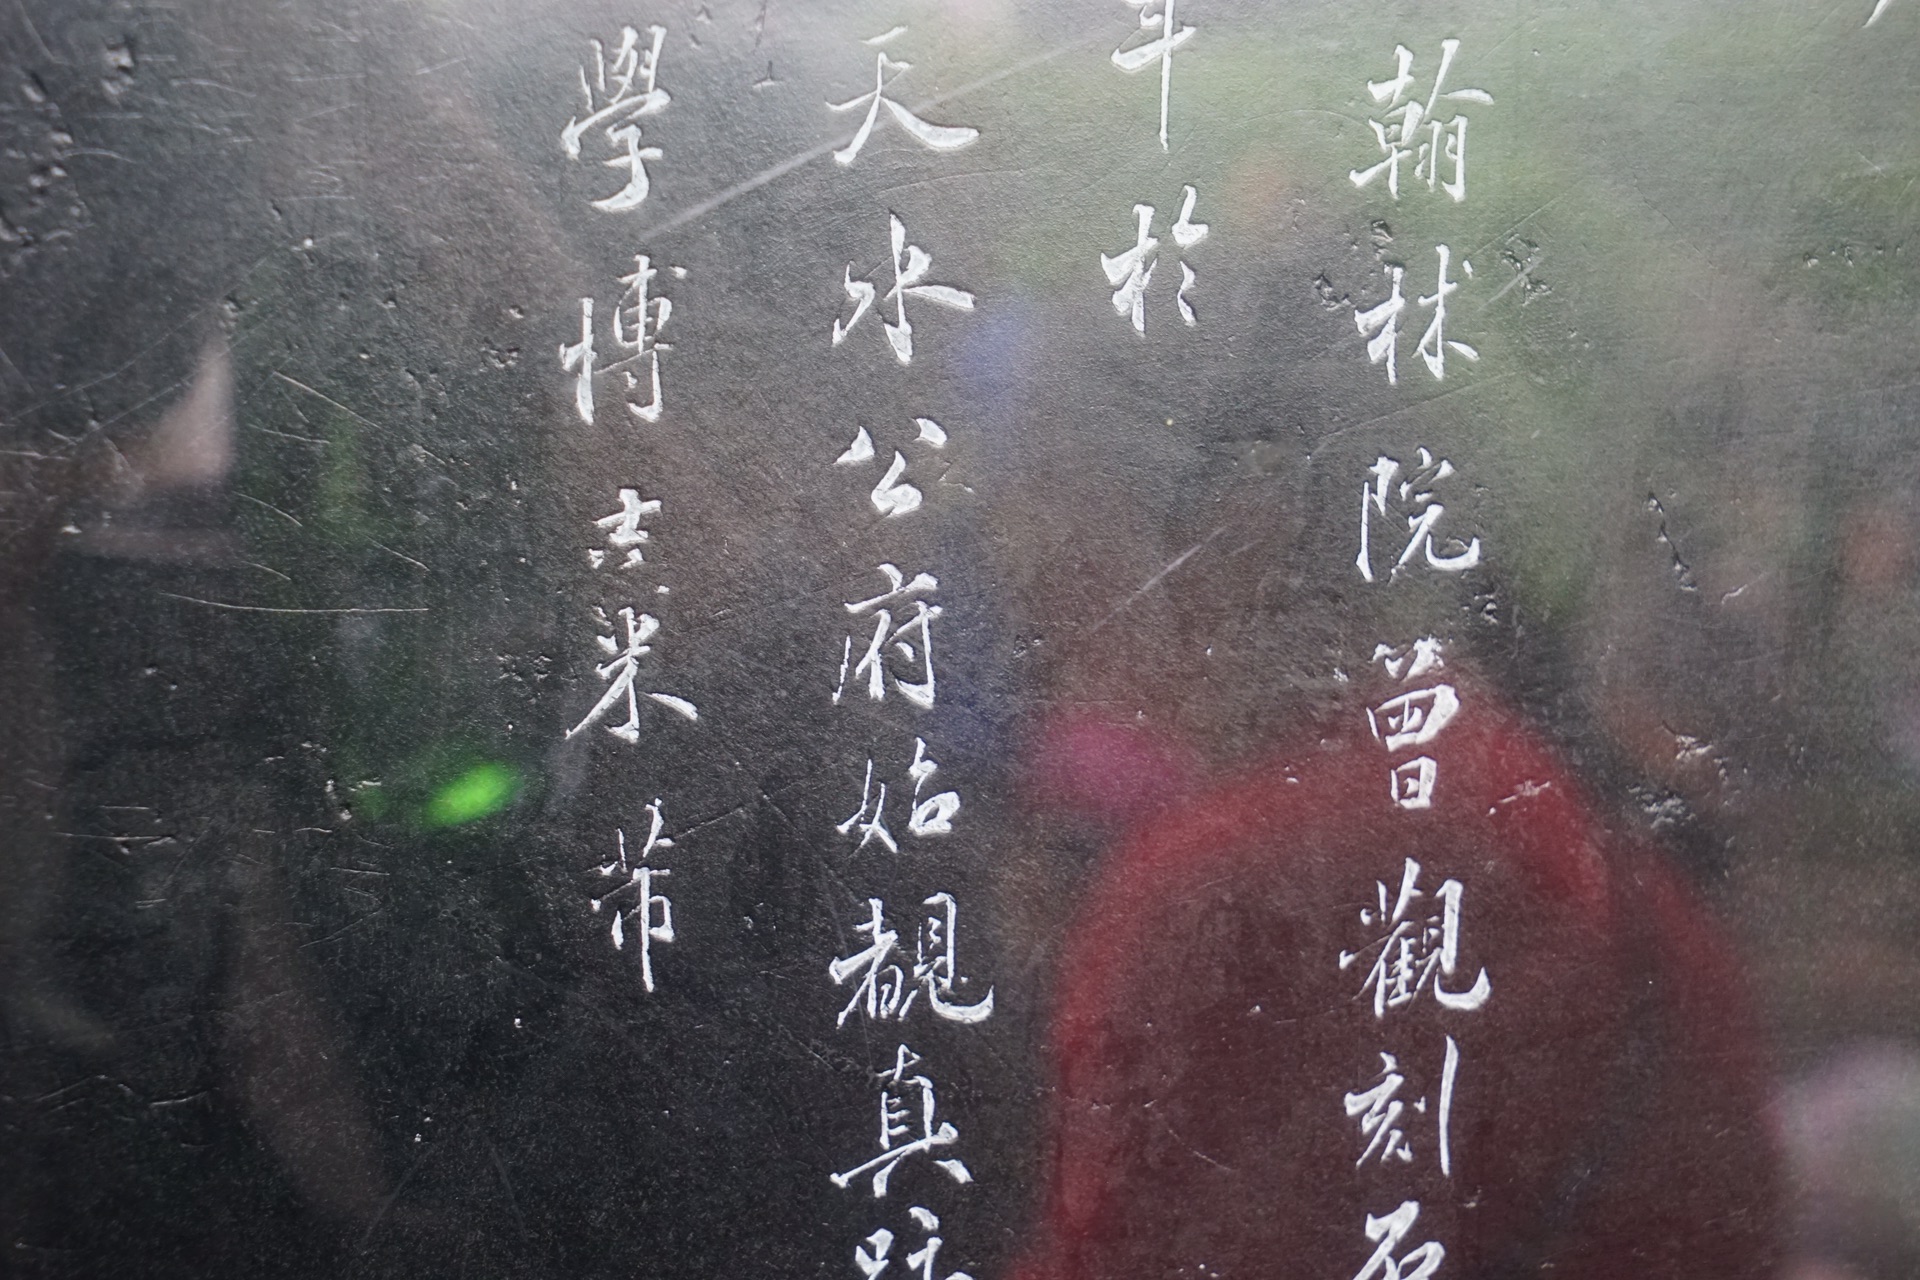 翰林院曾觀刻石
年於
天水公府始覩真跡
學博士米芾